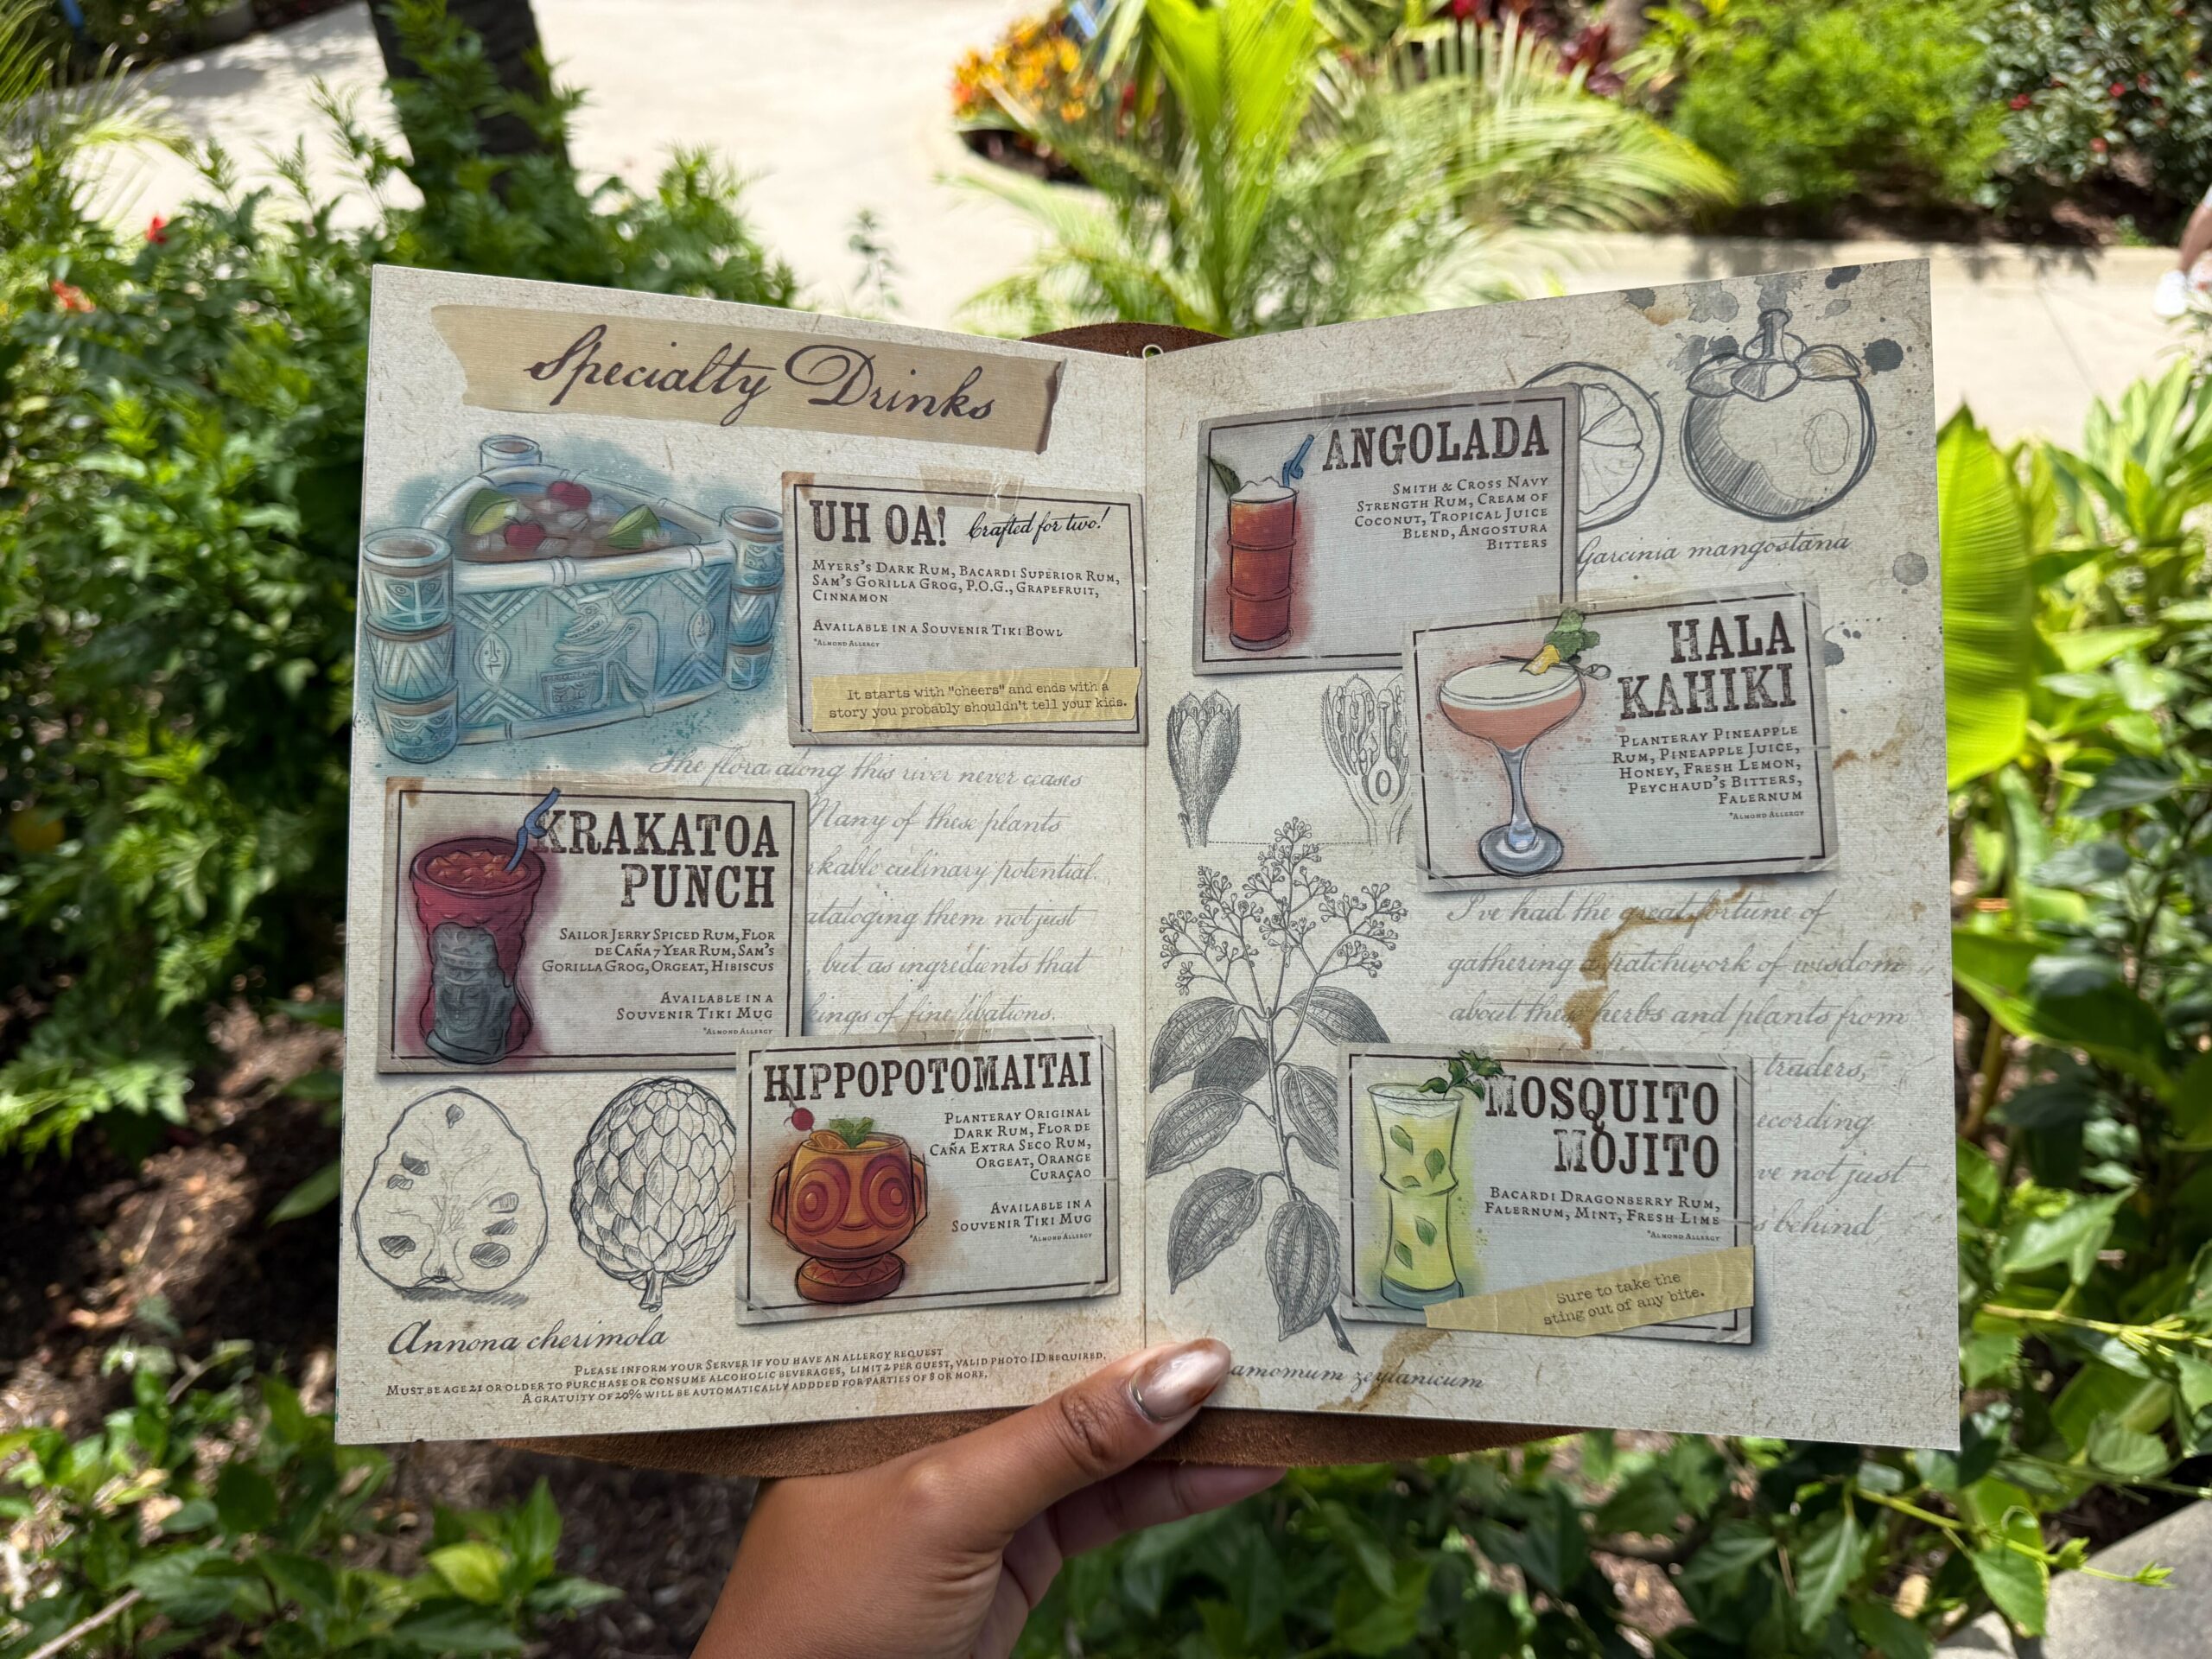 Specialty Drinks
UH OA! Crafted for two!
Myers's Dark Rum, Bacardi Superior Rum,
Sam's Gorilla Grog, P.O.G., Grapefruit,
Cinnamon
Available in a Souvenir Tiki Bowl
*Almond Allergy
It starts with "cheers" and ends with a
story you probably shouldn't tell your kids.
The flora along this river never ceases
Many of these plants
rkable culinary potential.
ataloging them not just
, but as ingredients that
kings of fine libations.
KRAKATOA
PUNCH
Sailor Jerry Spiced Rum, Flor
de Caña 7 Year Rum, Sam's
Gorilla Grog, Orgeat, Hibiscus
Available in a
Souvenir Tiki Mug
*Almond Allergy
HIPPOPOTOMAITAI
Planteray Original
Dark Rum, Flor de
Caña Extra Seco Rum,
Orgeat, Orange
Curaçao
Available in a
Souvenir Tiki Mug
*Almond Allergy
Annona cherimola
Please inform your Server if you have an allergy request
Must be age 21 or older to purchase or consume alcoholic beverages, limit 2 per guest, valid photo ID required.
A gratuity of 20% will be automatically addded for parties of 8 or more.
ANGOLADA
Smith & Cross Navy
Strength Rum, Cream of
Coconut, Tropical Juice
Blend, Angostura
Bitters
Garcinia mangostana
HALA
KAHIKI
Planteray Pineapple
Rum, Pineapple Juice,
Honey, Fresh Lemon,
Peychaud's Bitters,
Falernum
*Almond Allergy
I've had the great fortune of
gathering a patchwork of wisdom
about these herbs and plants from
traders,
ecording
ve not just
s behind
MOSQUITO
MOJITO
Bacardi Dragonberry Rum,
Falernum, Mint, Fresh Lime
*Almond Allergy
Sure to take the
sting out of any bite.
amomum zeylanicum